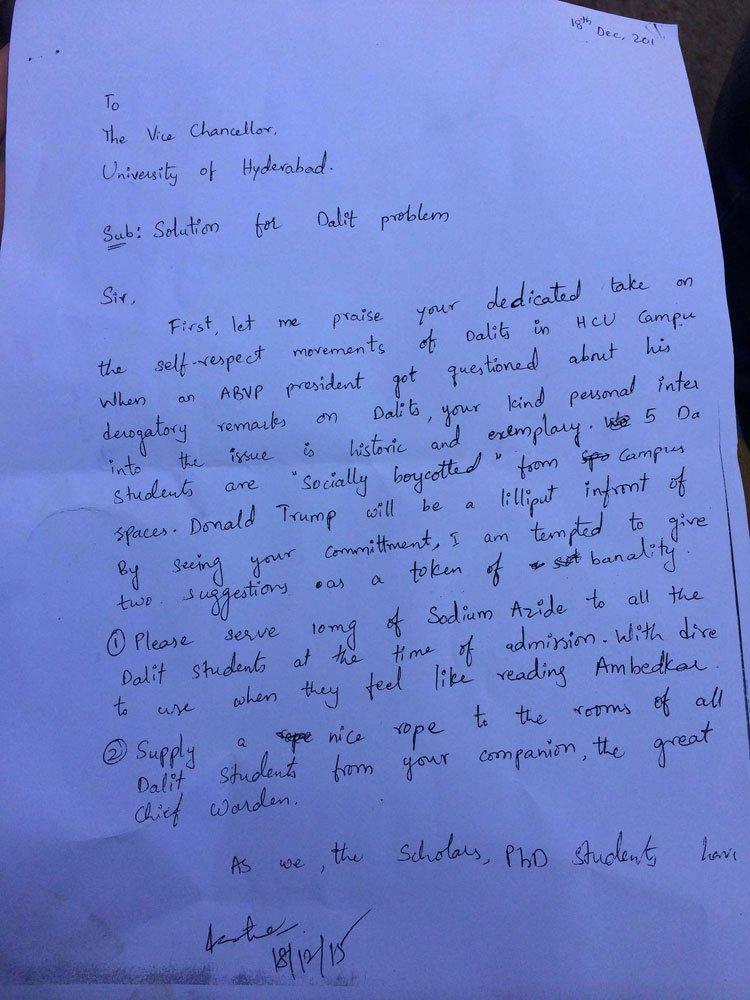 18th Dec, 201
To
The Vice Chancellor,
University of Hyderabad.
Sub: Solution for Dalit problem
Sir,
First, let me praise your dedicated take on
the self-respect movements of Dalits in HCU Campu
When an ABVP president got questioned about his
derogatory remarks on Dalits, your kind personal inter
into the issue is historic and exemplary. 5 Da
students are "socially boycotted" from campus
spaces. Donald Trump will be a lilliput infront of
By seeing your committment, I am tempted to give
two suggestions as a token of banality.
① Please serve 10mg of Sodium Azide to all the
Dalit students at the time of admission. With dire
to use when they feel like reading Ambedkar.
② Supply a nice rope to the rooms of all
Dalit students from your companion, the great
Chief Warden.
As we, the Scholars, PhD students have
18/12/15